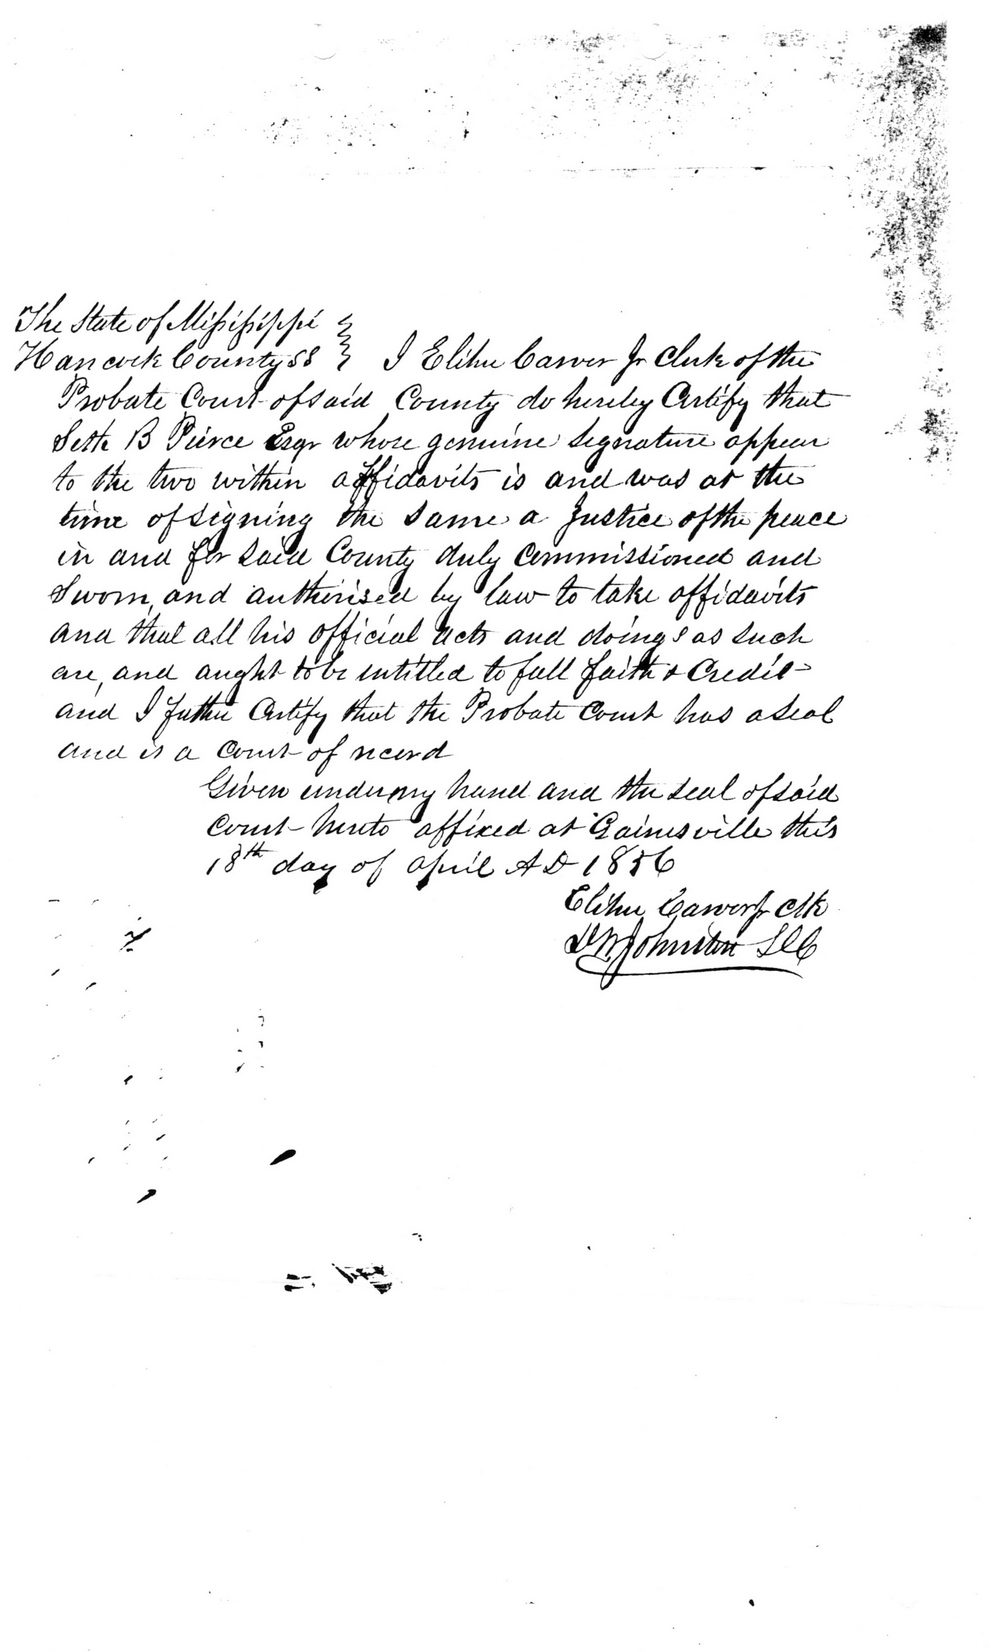 The State of Mississippi
Hancock County SS I Elihu Carver Jr Clerk of the
Probate Court of said County do hereby Certify that
Seth B Pierce Esqr whose genuine signature appear
to the two within affidavits is and was at the
time of signing the same a Justice of the peace
in and for said County duly Commissioned and
Sworn, and authorised by law to take affidavits
and that all his official acts and doings as such
are, and aught to be intitled to full faith & Credit
and I futher Certify that the Probate Court has a seal
and is a Court of record
Given under my hand and the seal of said
Court hereto affixed at Gainesville this
18th day of April A D 1856
Elihu Carver Jr Clk
Johnston